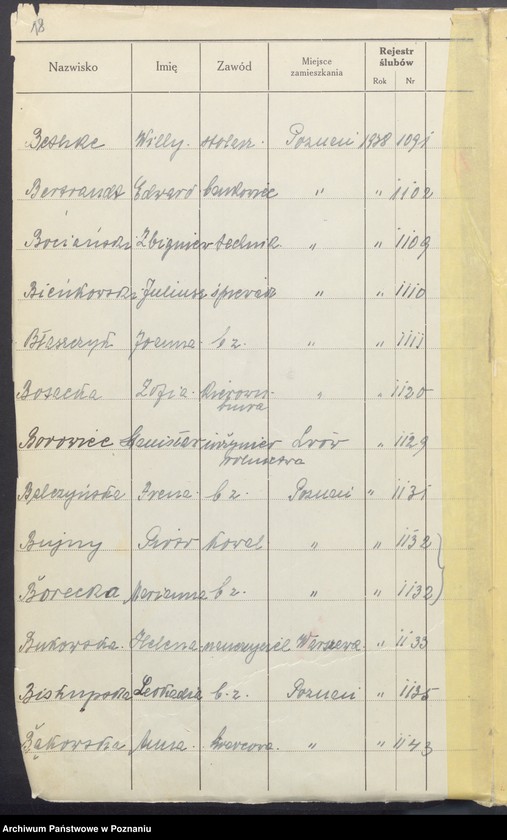 18
Nazwisko Imię Zawód Miejsce zamieszkania Rejestr ślubów Rok Nr
Bethke Willy stolarz Poznań 1938 1091
Bertrandt Edward bankowiec " " 1102
Bociański Zbigniew technik " " 1109
Bieńkowski Juliusz śpiewak " " 1110
Błaszczyk Joanna b. z. " " 1111
Bosacka Zofia kierown. " " 1120
biura
Borowiec Stanisław inżynier Lwów " 1129
rolnictwa
Belczyńska Irena b. z. Poznań " 1131
Bujny Piotr kowal " " 1132
Borecka Marianna b. z. " " 1132
Bukowska Helena nauczyciel Warszawa " 1133
Biskupska Leokadia b. z. Poznań " 1135
Bąkowska Anna krawcowa " " 1143
Archiwum Państwowe w Poznaniu